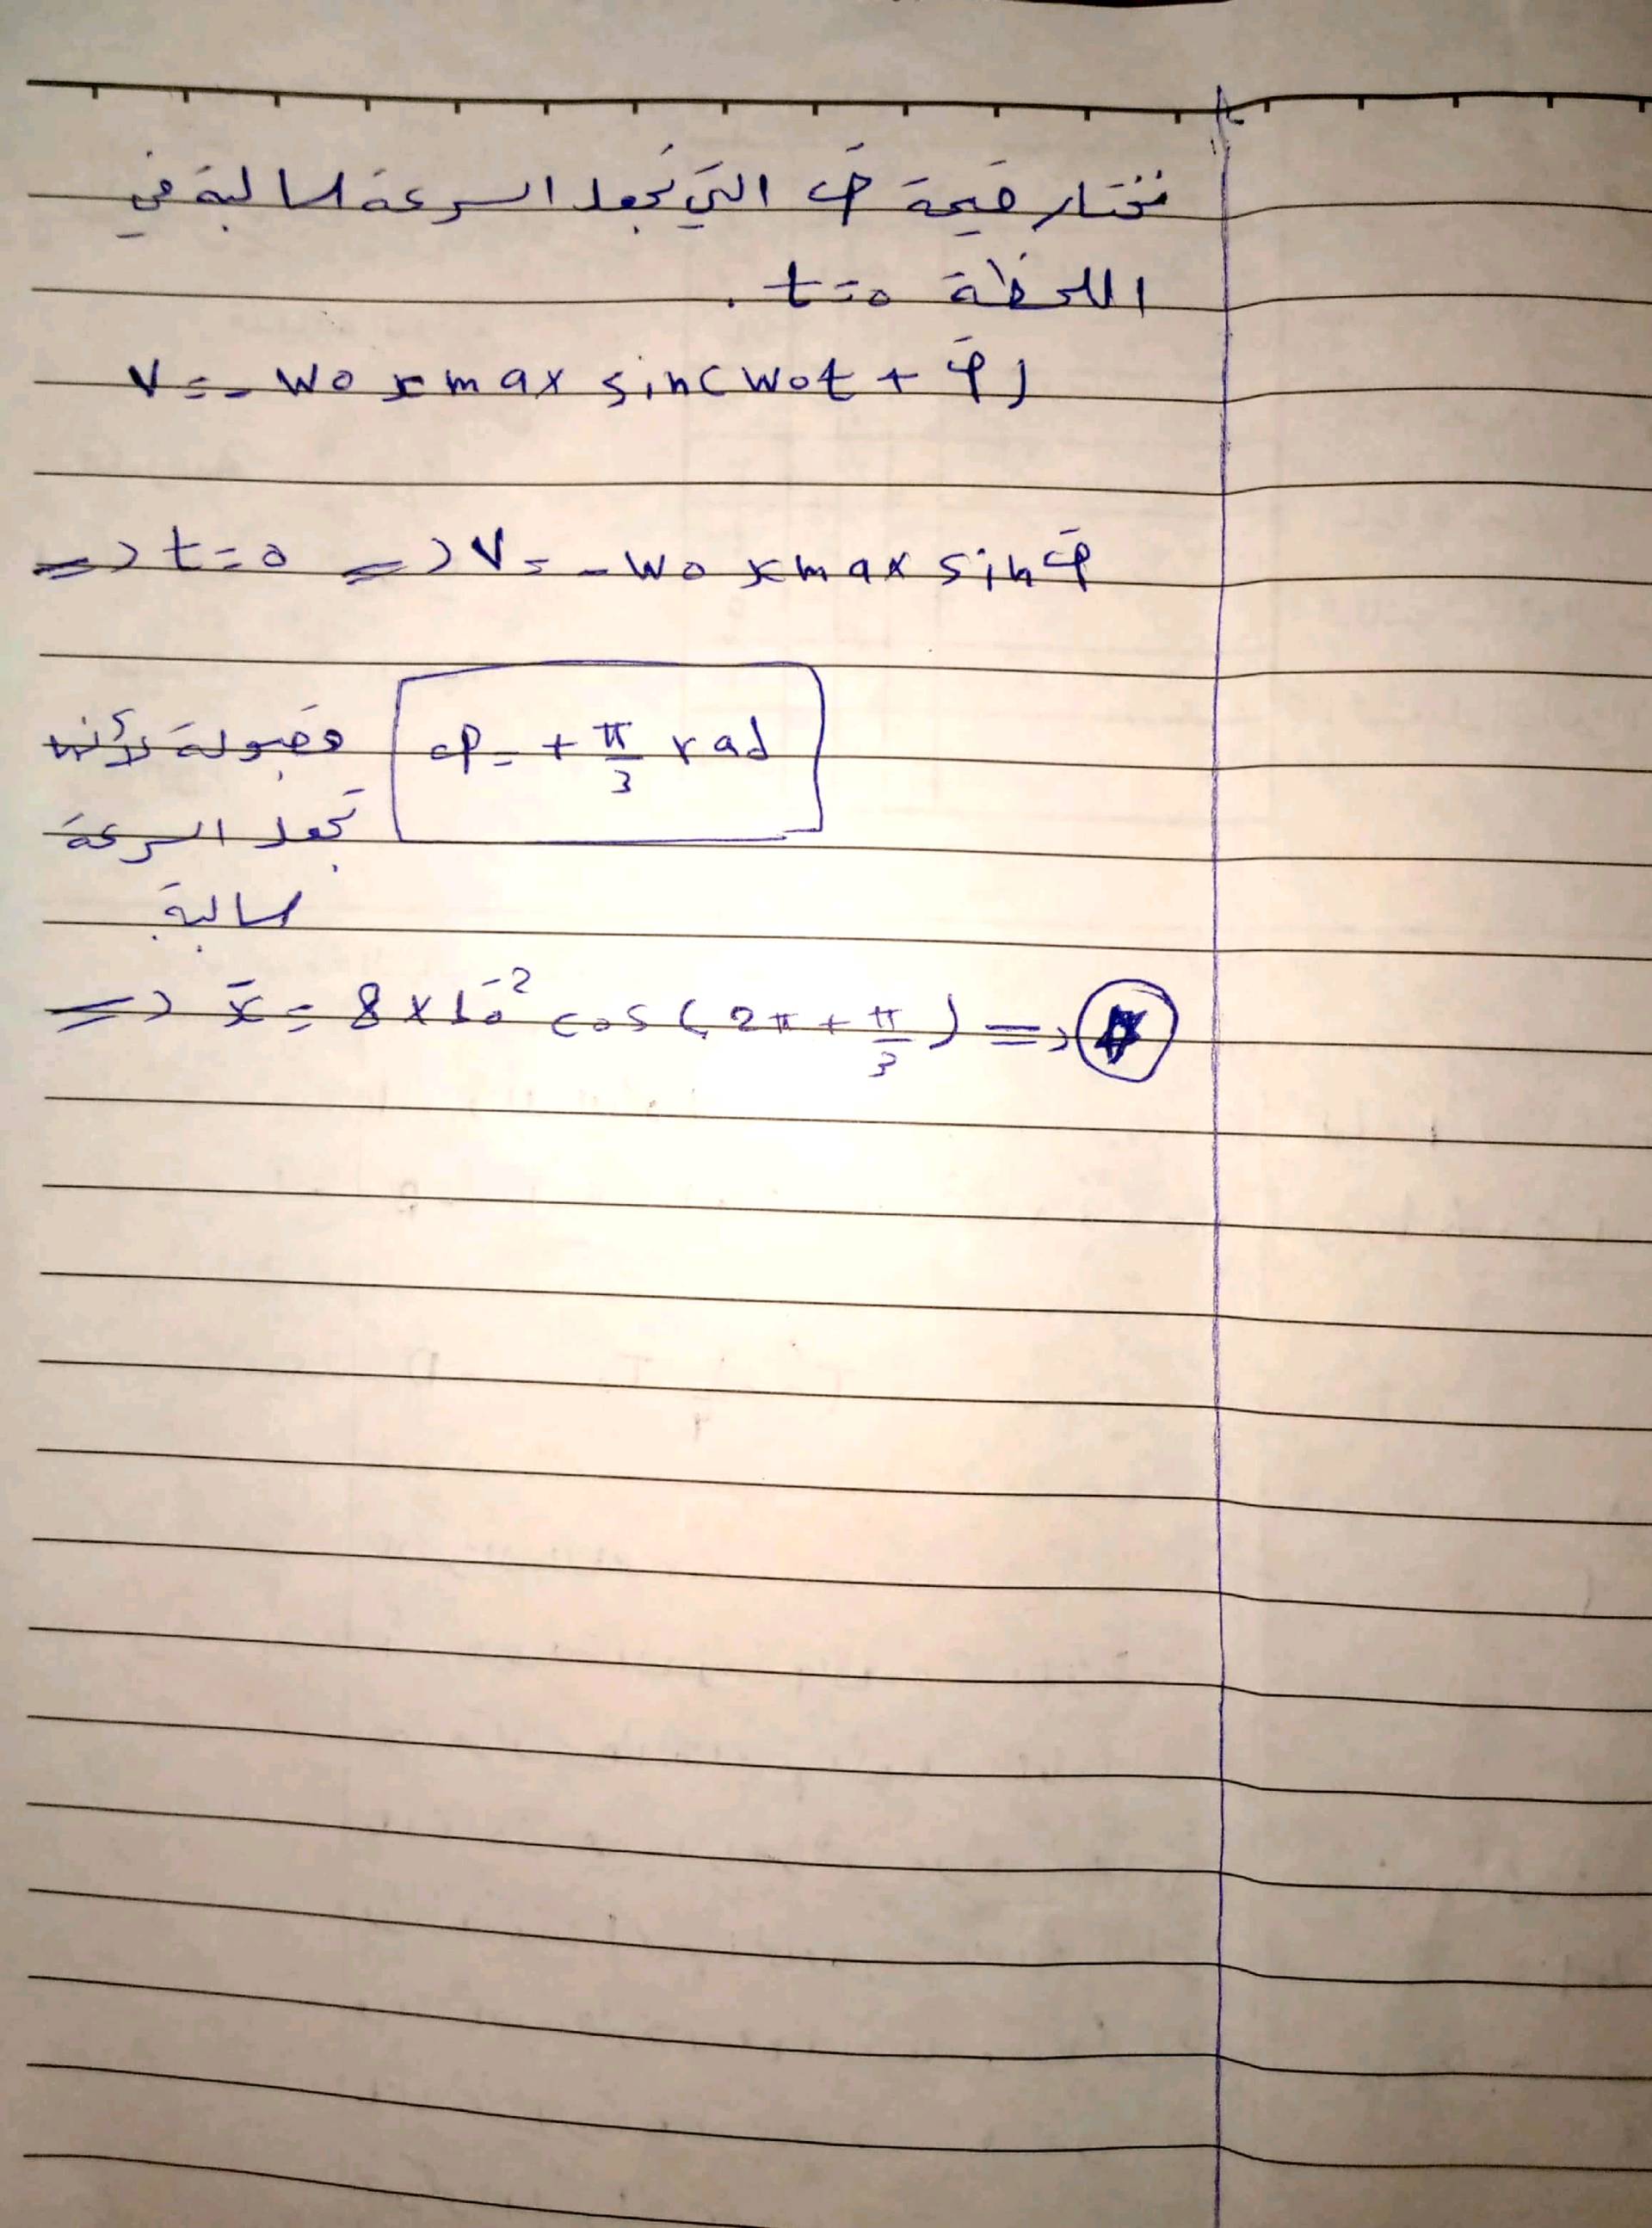 نختار قيمة φ̄ التي تجعل السرعة سالبة في
اللحظة t=0 .
v = - w0 x max sin(w0t + φ̄)
=> t=0 => v = - w0 x max sin φ̄
φ = + π/3 rad مقبولة لأنها
تجعل السرعة
سالبة
=> x̄ = 8 x 10^-2 cos(2π + π/3) =>